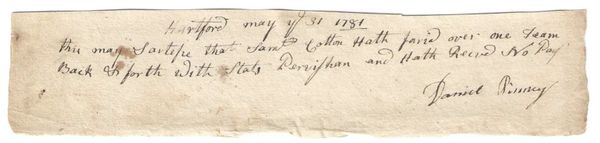 Hartford may ye 31 1781
this may Sartife that Saml Cotton Hath faried over one Team
Back & forth With Stats Dervishan and Hath Recvd No Pay
Daniel Pinney